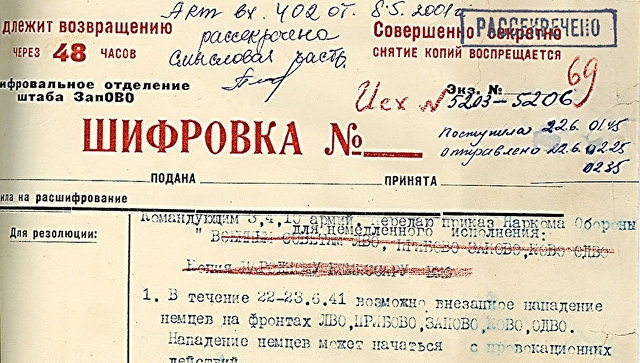 Акт вх. 402 от 8.5.2001г
рассекречена
смысловая часть.
РАССЕКРЕЧЕНО
длежит возвращению
ЧЕРЕЗ 48 ЧАСОВ
Совершенно секретно
СНЯТИЕ КОПИЙ ВОСПРЕЩАЕТСЯ
69
ифровальное отделение
штаба ЗапОВО
Экз. №
Исх № 5203-5206
ШИФРОВКА №
Поступила 22.6. 01.45
Отправлено 22.6. 02.25
02.35
ПОДАНА
ПРИНЯТА
ила на расшифрование
Для резолюции:
Командующим 3,4,10 армий. Передаю приказ Наркома Обороны
для немедленного исполнения:
" ВОЕННЫМ СОВЕТАМ ЛВО, ПРИБОВО ЗАПОВО, КОВО ОДВО
Копия
1. В течение 22-23.6.41 возможно внезапное нападение
немцев на фронтах ЛВО, ПРИБОВО, ЗАПОВО, КОВО, ОДВО.
Нападение немцев может начаться с провокационных
действий.